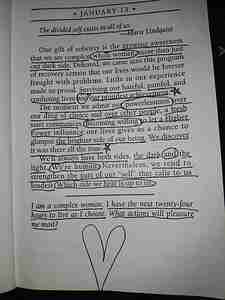 • JANUARY 13 •
The divided self exists in all of us.
—Mara Lindquist
One gift of sobriety is the growing awareness
that we are complex, whole women, more than just
our dark side. Deluded, we came into this program
of recovery certain that our lives would be forever
fraught with problems. Little in our experience
made us proud. Surviving our hateful, painful, and
confusing lives was our proudest achievement.
The moment we admit our powerlessness over
our drug of choice and over other people, a brand-
new commitment, becoming willing to let a Higher
Power influence our lives gives us a chance to
glimpse the brighter side of our being. We discover
it was there all the time.
We'll always have both sides, the dark and the
light. We're human. Nevertheless, we need to
strengthen the part of our "self" that calls to us
loudest. Which side we hear is up to us.
I am a complex woman. I have the next twenty-four
hours to live as I choose. What actions will pleasure
me most?